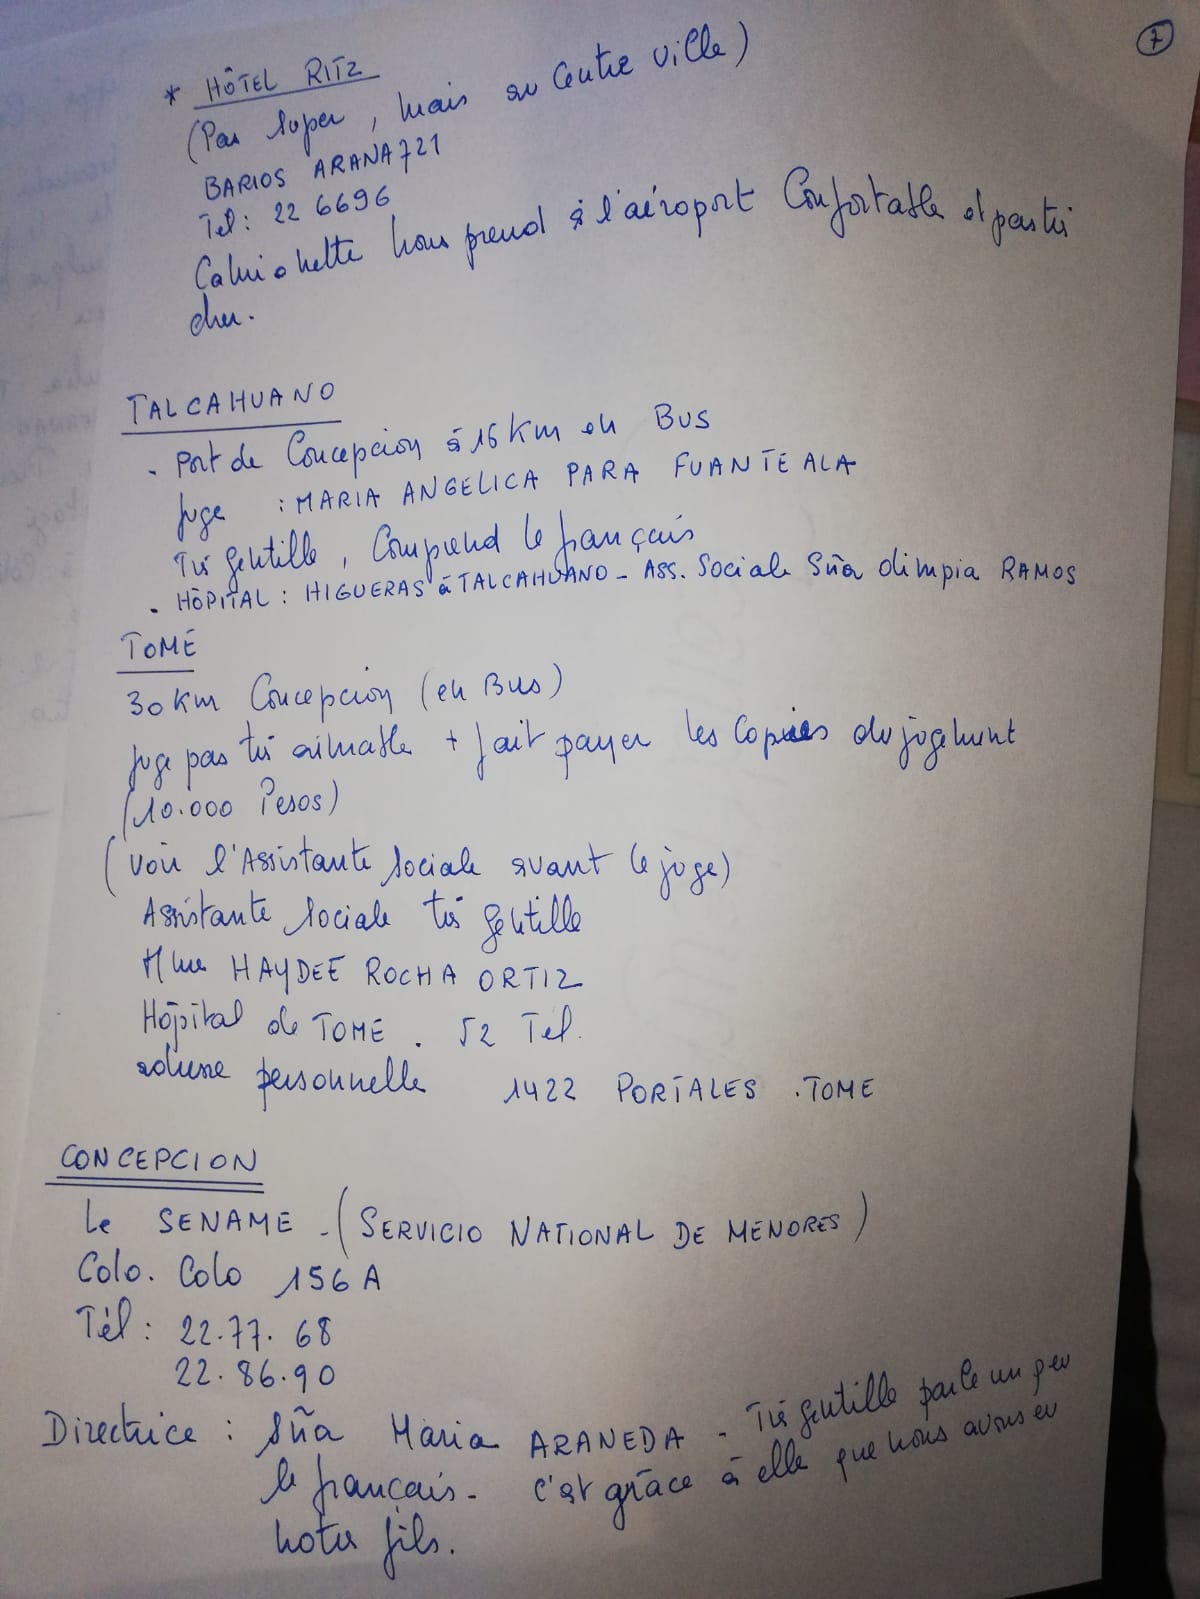 7
* HÔTEL RITZ
(Pas super, mais au Centre ville)
BARIOS ARANA 721
Tel: 22 6696
Camionette nous prend à l'aéroport Confortable et pas très
cher.
TALCAHUANO
. Port de Concepcion à 16 Km en BUS
Juge : MARIA ANGELICA PARA FUANTEALA
Très gentille, Comprend le français
. HÔPITAL : HIGUERAS à TALCAHUANO - ASS. Sociale Sña Olimpia RAMOS
TOMÉ
30 Km Concepcion (en Bus)
Juge pas très aimable + fait payer les Copies du jugement
(10.000 Pesos)
(Voir l'Assistante Sociale avant le juge)
Assistante Sociale très gentille
Mme HAYDEE ROCHA ORTIZ
Hôpital de TOME . 52 Tel.
adresse personnelle 1422 PORTALES . TOME
CONCEPCION
Le SENAME - (SERVICIO NATIONAL DE MENORES)
Colo. Colo 156 A
Tél : 22.77. 68
22. 86.90
Directrice : Sña Maria ARANEDA - Très gentille parle un peu
le français - C'est grâce à elle que nous avons eu
notre fils.